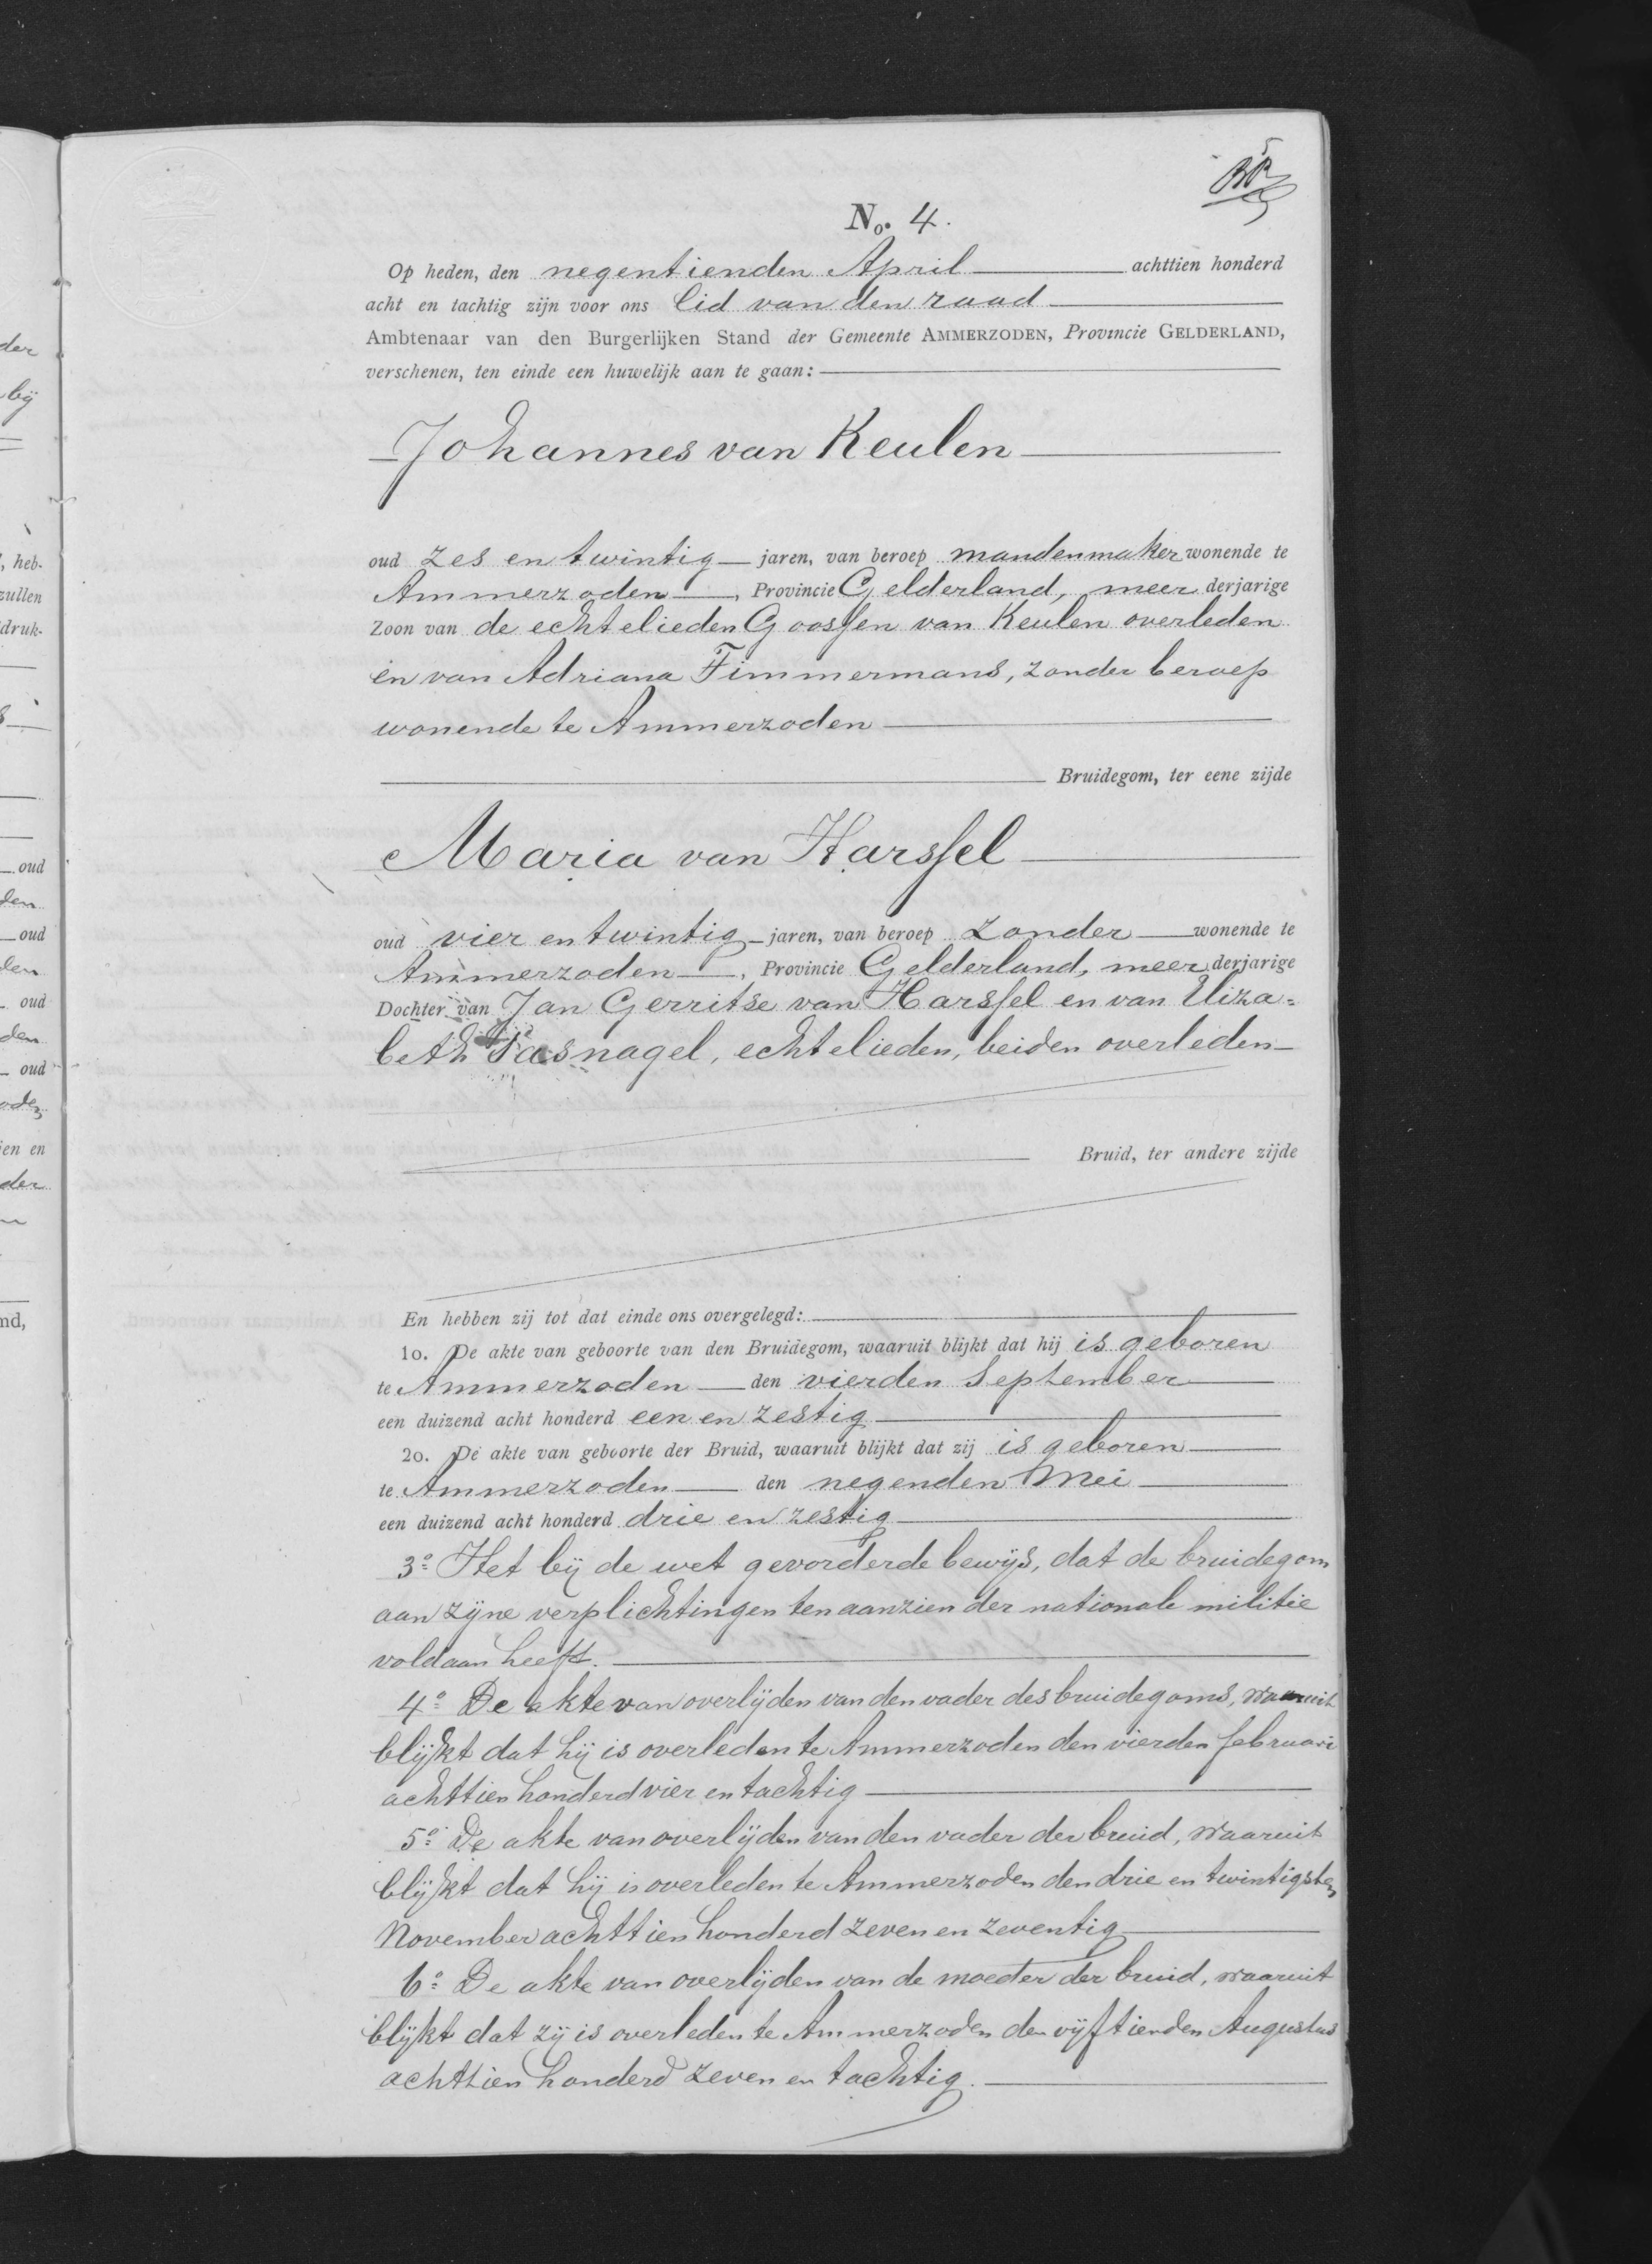 No. 4.
Op heden, den negentienden April achttien honderd
acht en tachtig zijn voor ons lid van den raad
Ambtenaar van den Burgerlijken Stand der Gemeente AMMERZODEN, Provincie GELDERLAND,
verschenen, ten einde een huwelijk aan te gaan:
Johannes van Keulen
oud zes en twintig jaren, van beroep mandenmaker wonende te
Ammerzoden, Provincie Gelderland, meer derjarige
Zoon van de echtelieden Goossen van Keulen overleden
en van Adriana Timmermans, zonder beroep
wonende te Ammerzoden
Bruidegom, ter eene zijde
Maria van Harssel
oud vier en twintig jaren, van beroep zonder wonende te
Ammerzoden, Provincie Gelderland, meer derjarige
Dochter van Jan Gerritse van Harssel en van Eliza=
beth Pasnagel, echtelieden, beiden overleden
Bruid, ter andere zijde
En hebben zij tot dat einde ons overgelegd:
1o. De akte van geboorte van den Bruidegom, waaruit blijkt dat hij is geboren
te Ammerzoden den vierden September
een duizend acht honderd een en zestig
2o. De akte van geboorte der Bruid, waaruit blijkt dat zij is geboren
te Ammerzoden den negenden Mei
een duizend acht honderd drie en zestig
3o Het bij de wet gevorderde bewijs, dat de bruidegom
aan zijne verplichtingen ten aanzien der nationale militie
voldaan heeft.
4o De akte van overlijden van den vader des bruidegoms, waaruit
blijkt dat hij is overleden te Ammerzoden den vierden februari
achttien honderd vier en tachtig
5o De akte van overlijden van den vader der bruid, waaruit
blijkt dat hij is overleden te Ammerzoden den drie en twintigsten
November achttien honderd zeven en zeventig
6o De akte van overlijden van de moeder der bruid, waaruit
blijkt dat zij is overleden te Ammerzoden den vijftienden Augustus
achttien honderd zeven en tachtig.